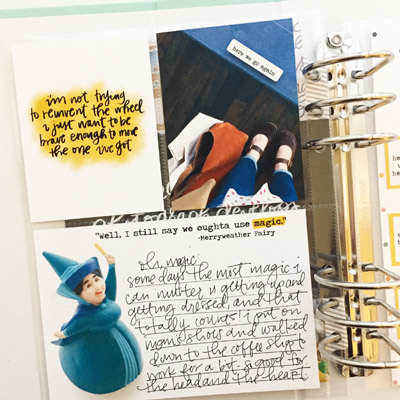 i'm not trying
to reinvent the wheel
i just want to be
brave enough to move
the one i've got
here we go again
"Well, I still say we oughta use magic."
-Merryweather Fairy
oh, magic.
some days the most magic i
can muster is getting up and
getting dressed and that
totally counts! i put on
mom's shoes and walked
down to the coffee shop to
work for a bit. so good for
the head and the heart